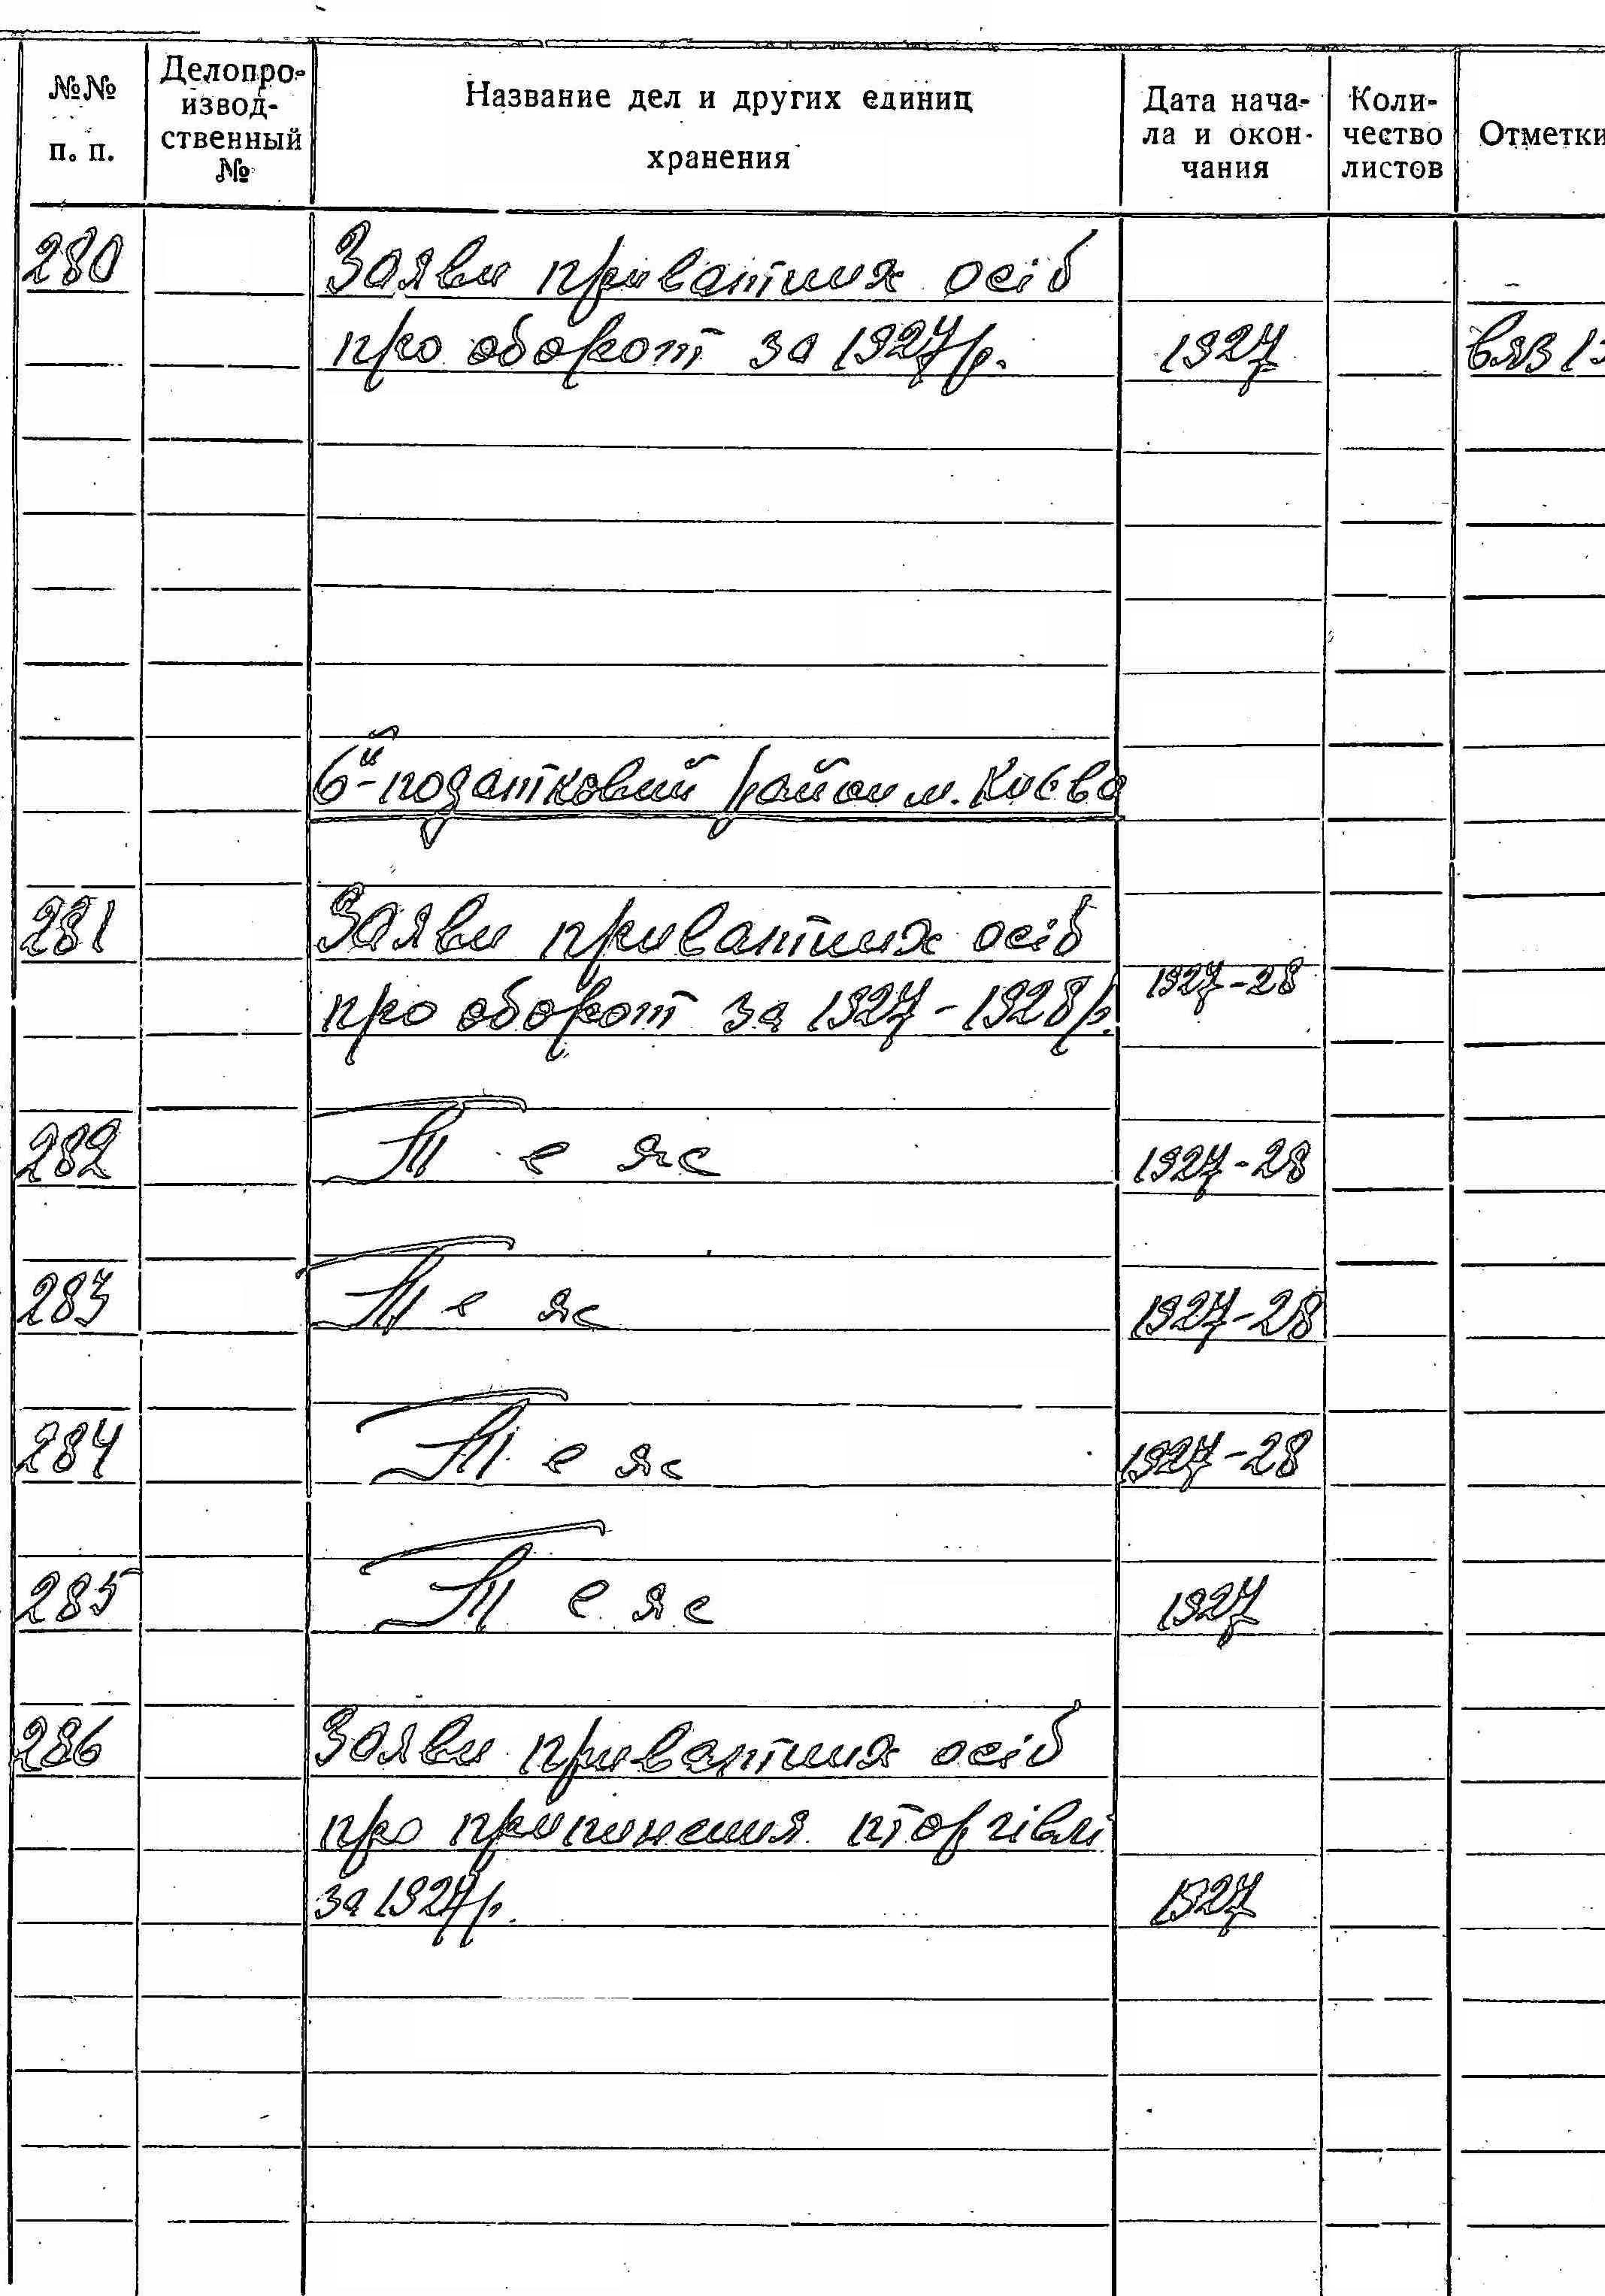 №№ п. п.
Делопро-
извод-
ственный
№
Название дел и других единиц
хранения
Дата нача-
ла и окон-
чания
Коли-
чество
листов
Отметки
280 Заяви приватних осіб
про оборот за 1927 р. 1927 вяз
6й- податковий район м. Києва
281 Заяви приватних осіб
про оборот за 1927-1928 р. 1927-28
282 Те же 1927-28
283 Те же 1927-28
284 Те же 1927-28
285 Те же 1927
286 Заяви приватних осіб
про припинення торгівлі
за 1927 р. 1927